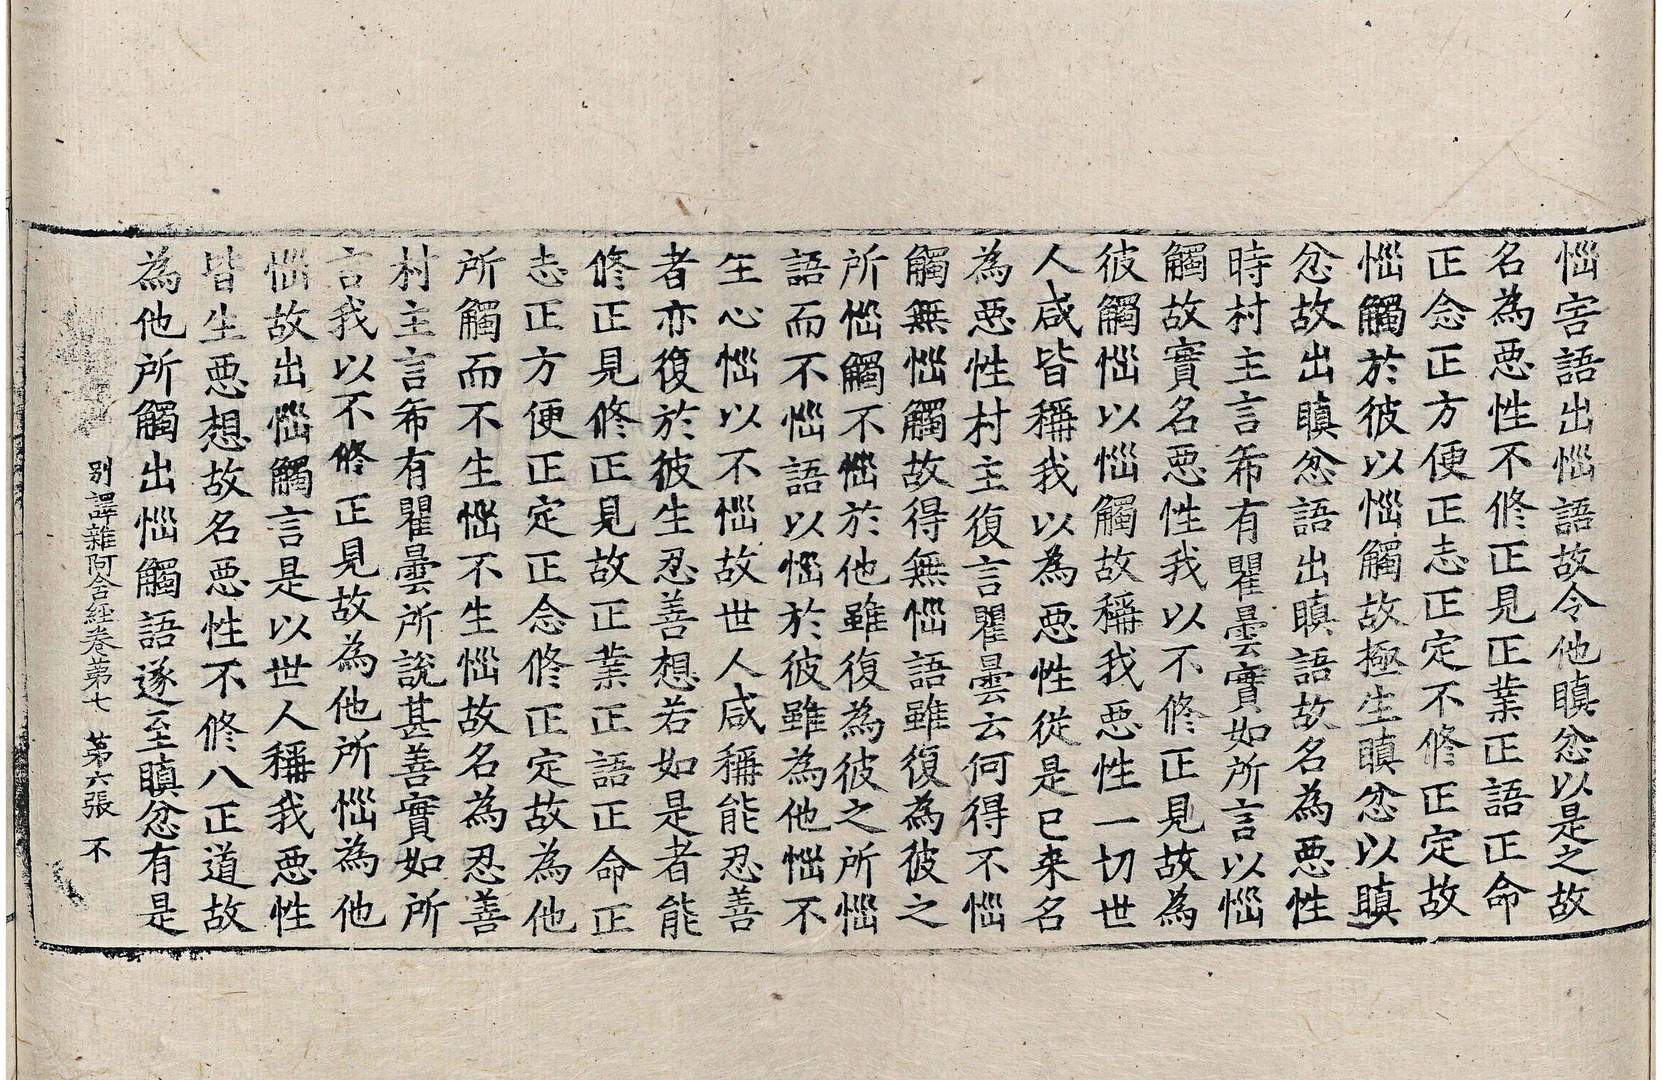 惱害語出惱語故令他瞋忿以是之故
名為惡性不修正見正業正語正命
正念正方便正志正定不修正定故
惱觸於彼以惱觸故極生瞋忿以瞋
忿故出瞋忿語出瞋語故名為惡性
時村主言希有瞿曇實如所言以惱
觸故實名惡性我以不修正見故為
彼觸惱以惱觸故稱我惡性一切世
人咸皆稱我以為惡性從是已来名
為惡性村主復言瞿曇云何得不惱
觸無惱觸故得無惱語雖復為彼之
所惱觸不惱於他雖復為彼之所惱
語而不惱語以惱於彼雖為他惱不
生心惱以不惱故世人咸稱能忍善
者亦復於彼生忍善想若如是者能
修正見修正見故正業正語正命正
志正方便正定正念修正定故為他
所觸而不生惱不生惱故名為忍善
村主言希有瞿曇所說甚善實如所
言我以不修正見故為他所惱為他
惱故出惱觸言是以世人稱我惡性
皆生惡想故名惡性不修八正道故
為他所觸出惱觸語遂至瞋忿有是
別譯雜阿含經卷第七 第六張 不